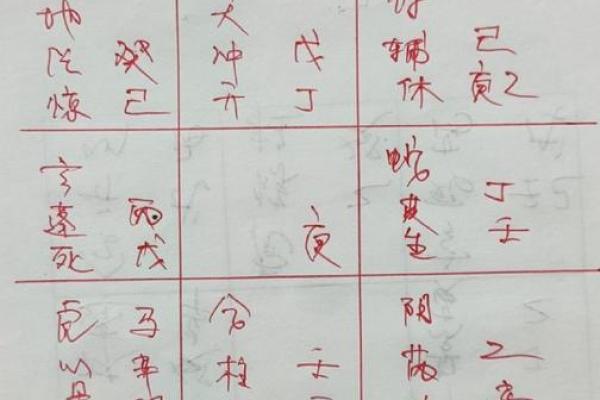 地任惊
癸己
冲开
戊丁
辅休
己庚乙
玄蓬死
丙戊
庚
蛇英生
丁壬
虎心
马辛
合柱
壬
阴芮
乙